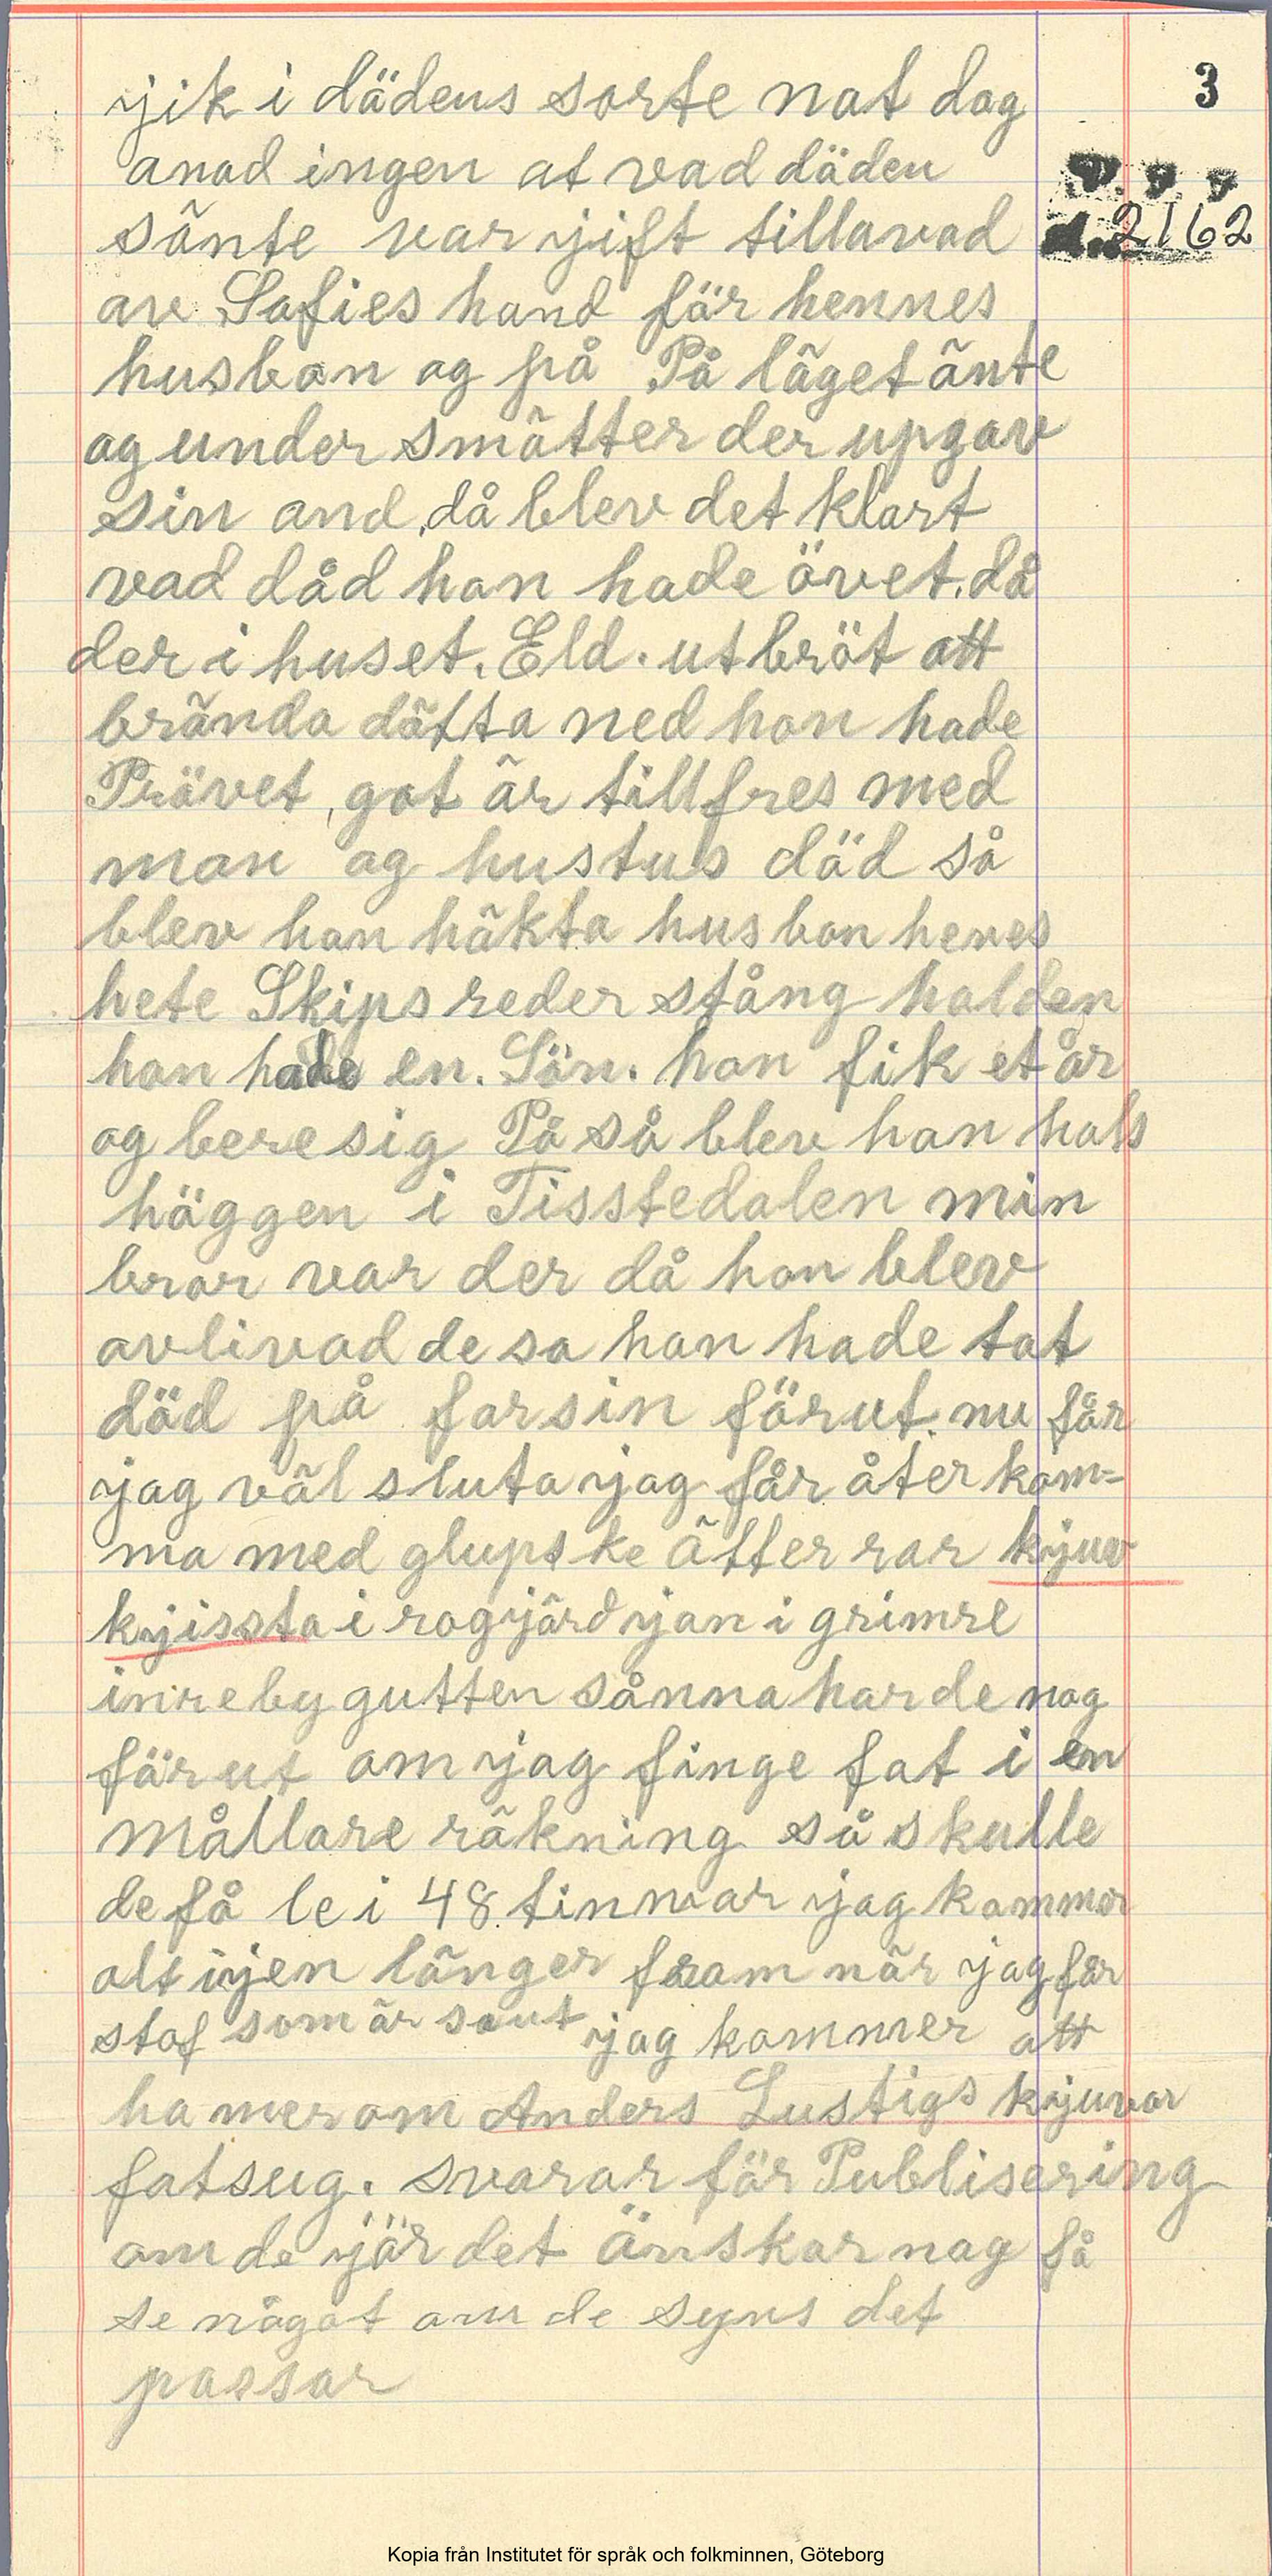 3
yjik i dädens sorte nat dag
anad ingen at vad däden
sänte var yift tillavad
av Sofies hand fär hennes
husbon og på På läget änte
og under smätter der upgav
sin and, då blev det klart
vad dåd han hade övet. då
der i huset. Eld. utbröt att
brända dätta ned hon hade
Prövet, got är tillfres med
man og hustus däd så
blev han häkta husbon henes
hete Skips reder stång halden
han hade en. Sön. han fik et år
og bere sig På så blev han hals
häggen i Tisstedalen min
bror var der då hon blev
avlivad de sa han hade tat
död på farsin förut. nu får
jag väl sluta jag får åter kom=
ma med glupske ätter rar kjuv
kjissta i rogjärd jan i grimre
inre by gutten sånna har de nog
färut om jag finge fat i en
mållare räkning så skulle
de få le i 48 timmar jag kommer
alt ijen länger fram när jag får
stof som är sant jag kommer att
ha mer om Anders Lustigs kjuvar
fatsug. svarar för Publisering
om de jär det Änskar nag få
se något om de syns det
passar
2162
Kopia från Institutet för språk och folkminnen, Göteborg